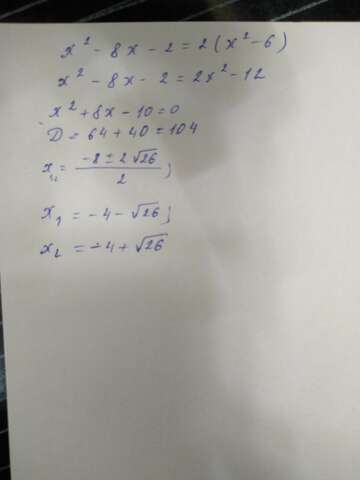 x² - 8x - 2 = 2(x² - 6)
x² - 8x - 2 = 2x² - 12
x² + 8x - 10 = 0
D = 64 + 40 = 104
x₁,₂ = (-8 ± 2√26)/2 ;
x₁ = -4 - √26 ;
x₂ = -4 + √26